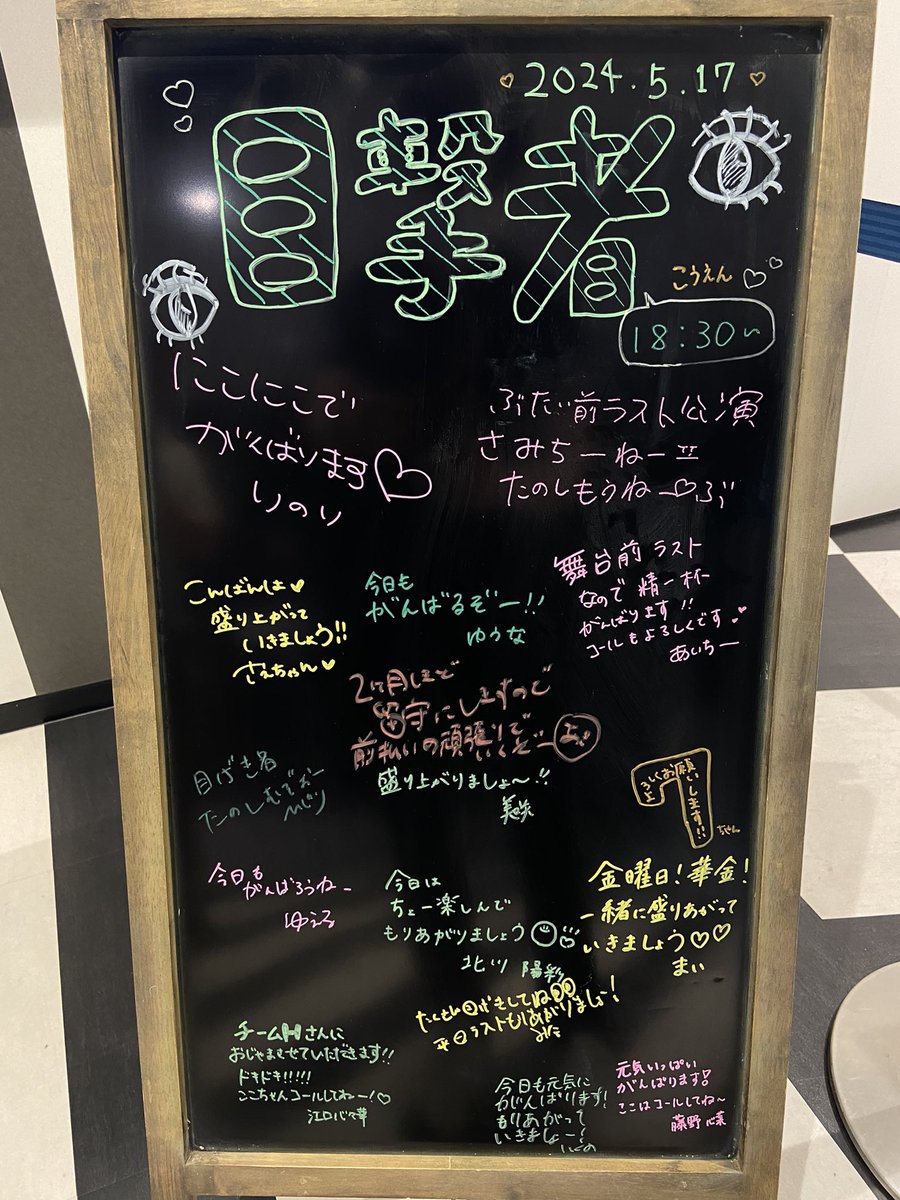 2024.5.17
目撃者
こうえん
18:30~
にこにこで
がんばります♡
りのり
ぶたい前ラスト公演
さみちーねー
たのしもうねー♡ぶ
こんばんは♥
盛り上がって
いきましょう!!
さえちゃん♥
今日も
がんばるぞー!!
ゆうな
舞台前ラスト
なので精一杯
がんばります!!
コールもよろしくです♥
あいちー
2ヶ月ほど
留守にしますので
前払いの頑張りで
いくぞー
盛り上がりましょ〜!!
美咲
目げき者
たのしむぞおー
よろしくお願いします!!
ちゃん
今日も
がんばろうねー
ゆえる
今日は
ちょー楽しんで
もりあがりましょう
北川 陽彩
金曜日!華金!
一緒に盛りあがって
いきましょう♡♡
まい
たくさん目げきしてね
平日ラストもりあがりましょー!
チームHさんに
おじゃまさせていただきます!!
ドキドキ!!!!!
ここちゃんコールしてねー!♡
江口心々華
今日も元気に
がんばります!
もりあがって
いきましょー!
元気いっぱい
がんばります!
ここはコールしてね〜
藤野 心葉